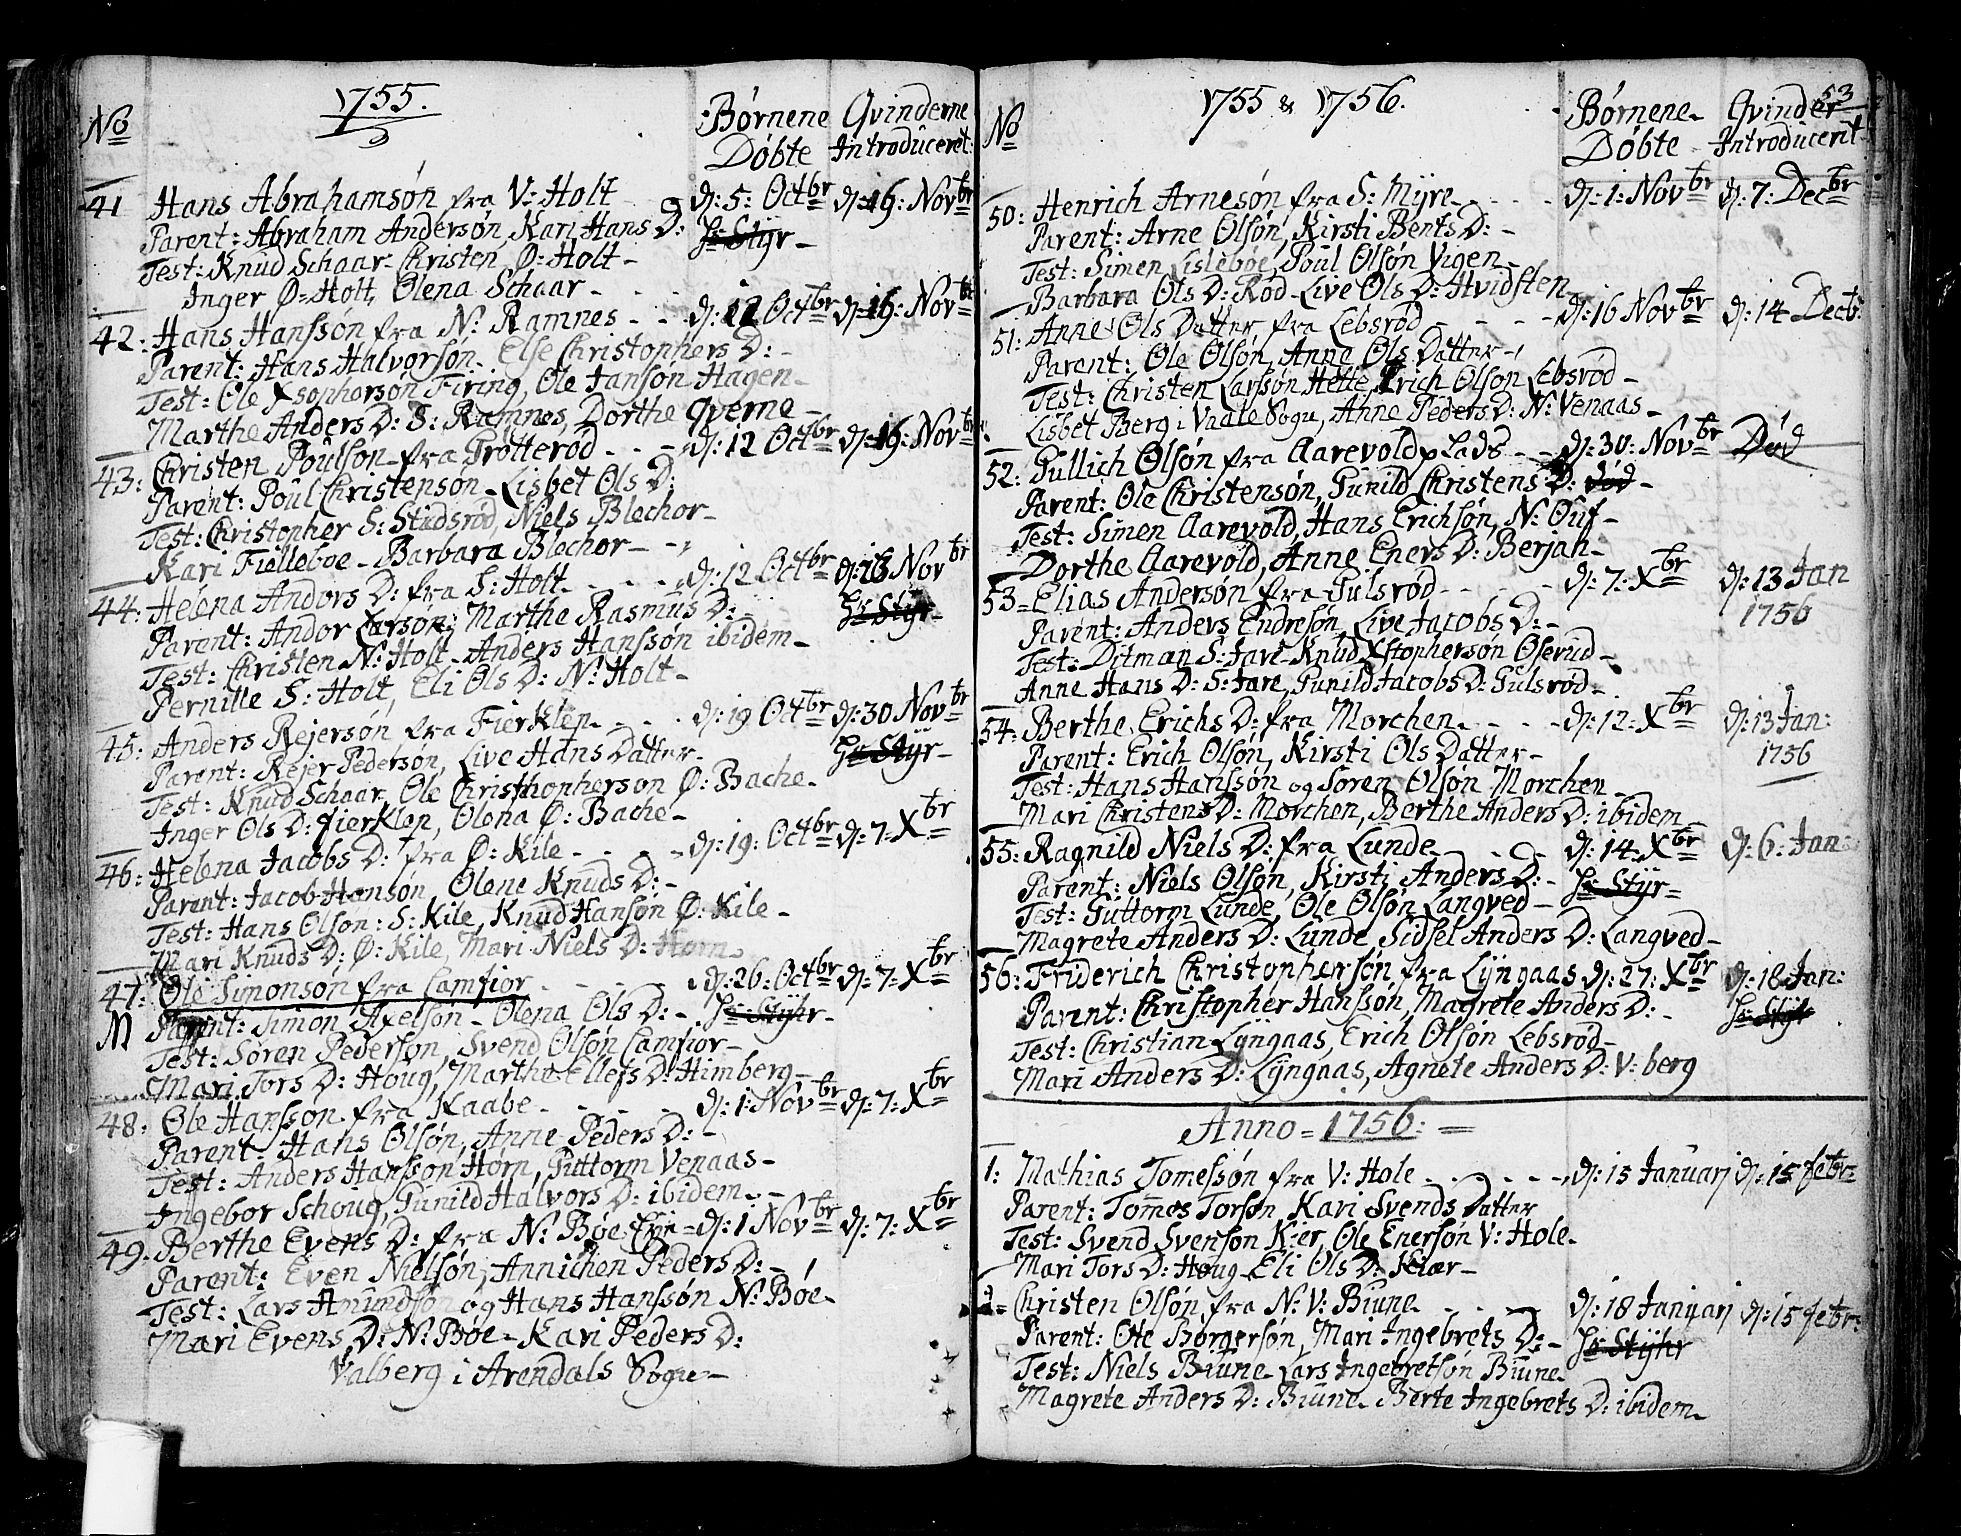 1755.
No
Børnene Døbte
Qvinderne Introduceret
41 Hans Abrahamsøn fra V: Holt - dj: 5: Octbr dj: 16: Novbr
Parent: Abraham Andersøn, Kari Hans D: Hr Styr -
Test: Knud Schaar - Christen Ø: Holt -
Inger Ø: Holt, Olena Schaar -
42: Hans Hanssøn fra N: Ramnes - - dj: 12 Octbr dj: 16: Novbr
Parent: Hans Halvorsøn - Else Christophers D: -
Test: Ole Xsophersøn Firing, Ole Jansøn Hagen -
Marthe Anders D: S: Ramnes, Dorthe Qverne -
43: Christen Poulsøn fra Trotterød - - dj: 12 Octbr dj: 16: Novbr
Parent: Poul Christensøn - Lisbet Ols D:
Test: Christopher S: Studsrød, Niels Blechor -
Kari Fielleboe - Barbara Blechor -
44: Helena Andors D: fra S: Holt - - - dj: 12 Octbr dj: 16 Novbr
Parent: Andor Larsøn; Marthe Rasmus D: - Hr Styr -
Test: Christen N: Holt - Anders Hanssøn ibidem -
Pernille S: Holt, Eli Ols D: N: Holt -
45: Anders Rejersøn fra Fierklep - - - dj: 19 Octbr dj: 30 Novbr
Parent: Rejer Pedersøn, Live Hans Datter - Hr Styr -
Test: Knud Schaar, Ole Christhophersøn Ø: Bache -
Inger Ols D: Fierklep, Olena Ø: Bache -
46: Helena Jacobs D: fra Ø: Kile - - - dj: 19: Octbr dj: 7: Xbr
Parent: Jacob Hansøn, Olene Knuds D: -
Test: Hans Olsøn: S: Kile, Knud Hansøn Ø: Kile -
Mari Knuds D: Ø: Kile, Mari Niels D: Horn -
47: Ole Simonsøn fra Camfior - - - dj: 26: Octbr dj: 7: Xbr
M Parent: Simon Axelsøn - Olena Ols D: - Hr Styhr -
Test: Søren Pedersøn, Svend Olsøn Camfior -
Mari Tors D: Houg, Marthe Ellefs D: Himberg -
48: Ole Hanssøn fra Kaabe - - - dj: 1: Novbr dj: 7: Xbr
Parent: Hans Olsøn, Anne Peders D: -
Test: Anders Hanssøn Horn, Guttorm Venaas -
Ingebor Schoug, Gunild Halvors D: ibidem -
49: Berthe Evens D: fra N: Bøe Eje - dj: 1 Novbr dj: 7: Xbr
Parent: Even Nielsøn, Annichen Peders D: -
Test: Lars Amundsøn og Hans Hanssøn N: Bøe -
Mari Evens D: N: Bøe - Kari Peders D:
Valberg i Arendals Sogn -
53
1755 & 1756.
No
Børnene Døbte
Qvinder Introducerit
50: Henrich Arnesøn fra S: Myre - - - dj: 1: Novbr dj: 7: Decbr
Parent: Arne Olsøn, Kirsti Bents D: -
Test: Simen Lisleboe, Poul Olsøn Vigen -
Barbara Ols D: Rød - Live Ols D: Hvidsten
51: Anne Ols Datter fra Lebsrød - - - dj: 16 Novbr dj: 14 Decbr
Parent: Ole Olsøn, Anne Ols Datter -
Test: Christen Larssøn Helle, Erich Olsøn Lebsrød -
Lisbet Berg i Vaale Sogn, Anne Peders D: N: Venaas -
52: Gullich Olsøn fra Aarevold plads - dj: 30: Novbr Død
Parent: Ole Christensøn, Gunild Christens D: død -
Test: Simen Aarevold, Hans Erichsøn, N: Ouf -
Dorthe Aarevold, Anne Eners D: Berjan -
53 - Elias Andersøn fra Gulsrød - - - dj: 7: Xbr dj: 13 Jan
Parent: Anders Endresøn, Live Jacobs D: - 1756
Test: Ditman S: Jare - Knud Xstophersøn Oserud -
Anne Hans D: S: Jare, Gunild Jacobs D: Gulsrød -
54: Berthe Erichs D: fra Morchen - - - dj: 12: Xbr dj: 13 Jan:
Parent: Erich Olsøn, Kirsti Ols Datter - 1756
Test: Hans Hanssøn og Søren Olsøn Morchen -
Mari Christens D: Morchen, Berthe Anders D: ibidem -
55: Ragnild Niels D: fra Lunde - - - dj: 14: Xbr dj: 6: Jan:
Parent: Niels Olsøn, Kirsti Anders D: - Hr Styr -
Test: Guttorm Lunde, Ole Olsøn Langved -
Magrete Anders D: Lunde, Sidsel Anders D: Langved -
56: Friderich Christophersøn fra Lyngaas dj: 27: Xbr dj: 18 Jan:
Parent: Christopher Hanssøn, Magrete Anders D: - Hr Styr
Test: Christian Lyngaas, Erich Olsøn Lebsrød -
Mari Anders D: Lyngaas, Agnete Anders D: V: berg
Anno = 1756: =
1: Mathias Tomessøn fra V: Hole - - - dj: 15 Januarj dj: 15 febr:
Parent: Tomes Torsøn Kari Svends Datter
Test: Svend Svensøn Kier, Ole Enersøn V: Hole -
Mari Tors D: Houg - Eli Ols D: Kiær -
2 - Christen Olsøn fra N: V: Biune - - - dj: 18 Januarj dj: 15 febr:
Parent: Ole Borgersøn, Mari Ingebrets D: - Hr Styhr
Test: Niels Biune - Lars Ingebretsøn Biune -
Magrete Anders D: Biune - Berte Ingebrets D: ibidem -